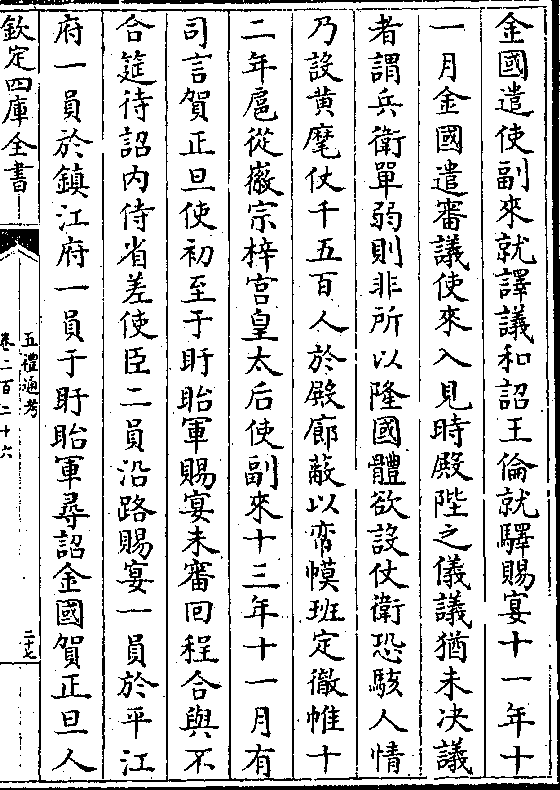 金國遣使副來就譯議和詔王倫就驛賜宴十一年十
一月金國遣審議使來入見時殿陛之儀議猶未決議
者謂兵衛單弱則非所以隆國體欲設仗衛恐駭人情
乃設黄麾仗千五百人於殿廊蔽以帟幙班定徹帷十
二年扈從徽宗梓宫皇太后使副來十三年十一月有
司言賀正旦使初至于盱眙軍賜宴未審回程合與不
合筵待詔内侍省差使臣二員沿路賜宴一員於平江
府一員於鎮江府一員于盱眙軍尋詔金國賀正旦人
欽定四庫全書
五禮通考
卷二百二十六
二七